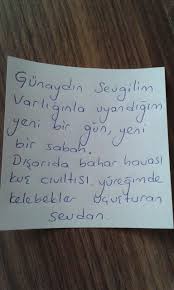 Günaydın Sevgilim
Varlığınla uyandığım
yeni bir gün, yeni
bir sabah.
Dışarıda bahar havası
kuş cıvıltısı, yüreğimde
kelebekler uçuşturan
sevdan.